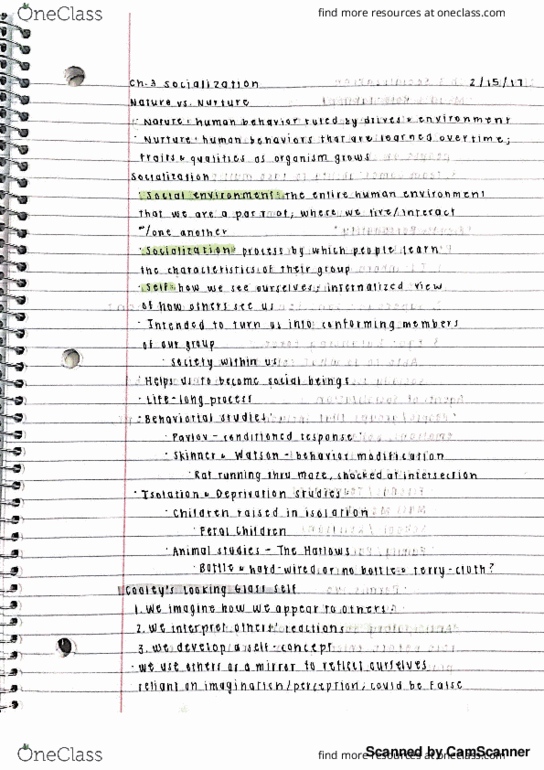 OneClass
find more resources at oneclass.com
Ch. 3 Socialization 2/15/17
Nature vs. Nurture
· Nature: human behavior ruled by drives & environment
· Nurture: human behaviors that are learned overtime;
traits & qualities as organism grows
Socialization
· Social environment: the entire human environment
that we are a part of; where we live/interact
w/one another
· Socialization: process by which people learn
the characteristics of their group
· Self: how we see ourselves; internalized view
of how others see us
· Intended to turn us into conforming members
of our group
· Society within us
· Helps us to become social beings
· Life-long process
· Behaviorial studies:
· Pavlov - conditioned response
· Skinner & Watson - behavior modification
· Rat running thru maze, shocked at intersection
· Isolation & Deprivation studies
· Children raised in isolation
· Feral Children
· Animal studies - The Harlows
· Bottle & hard-wired or no bottle & terry-cloth?
Cooley's Looking Glass Self
1. We imagine how we appear to others
2. We interpret others' reactions
3. We develop a self-concept
· We use others as a mirror to reflect ourselves
reliant on imagination/perception; could be false
OneClass
find more resources at oneclass.com
Scanned by CamScanner